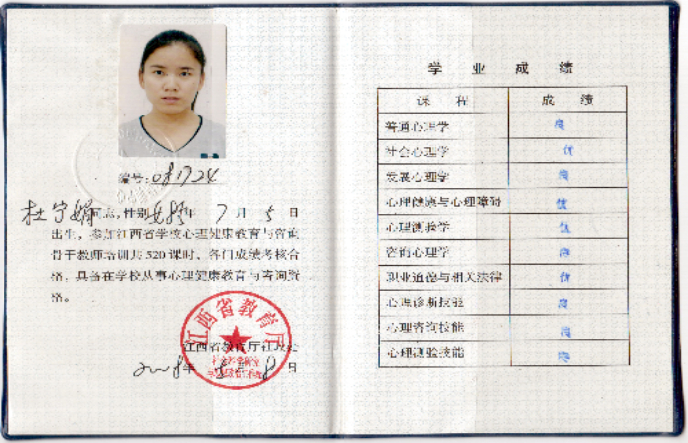 编号:081724
杜宁娟同志,性别女 年 7 月 5 日
出生,参加江西省学校心理健康教育与咨询
骨干教师培训共520课时、各门成绩考核合
格,具备在学校从事心理健康教育与咨询资
格。
江西省教育厅
江西省教育厅社政处
2008年 8 日
学 业 成 绩
课 程 成 绩
普通心理学 良
社会心理学 优
发展心理学 良
心理健康与心理障碍 优
心理测验学 优
咨询心理学 良
职业道德与相关法律 优
心理诊断技能 良
心理咨询技能 良
心理测验技能